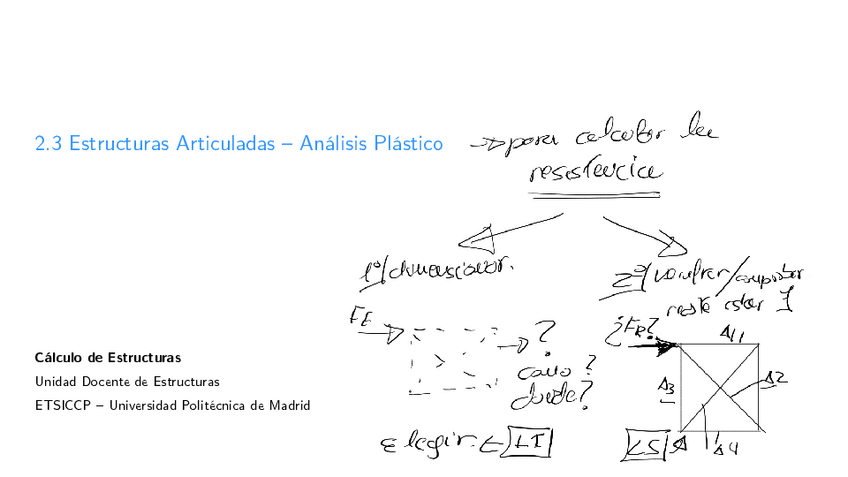 2.3 Estructuras Articuladas – Análisis Plástico
→ para calcular la
resistencia
1º/ dimensionar.
2º/
FE
?
como ?
donde?
Elegir. ← LI
¿FR?
A11
A3
A2
LS
A4
Cálculo de Estructuras
Unidad Docente de Estructuras
ETSICCP – Universidad Politécnica de Madrid